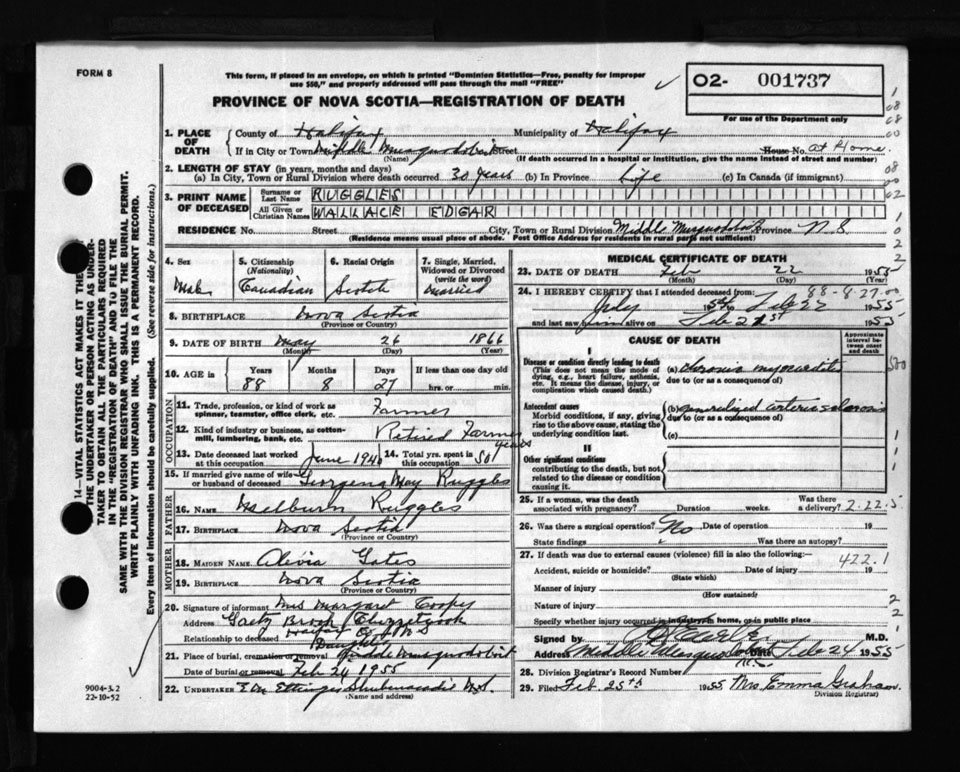 FORM 8
This form, if placed in an envelope, on which is printed "Dominion Statistics—Free, penalty for improper
use $50," and properly addressed will pass through the mail "FREE"
02- 001737
For use of the Department only
PROVINCE OF NOVA SCOTIA—REGISTRATION OF DEATH
1. PLACE OF DEATH
County of Halifax Municipality of Halifax
If in City or Town Middle Musquodoboit Street House No. at Home.
(Name) (If death occurred in a hospital or institution, give the name instead of street and number)
2. LENGTH OF STAY (in years, months and days)
(a) In City, Town or Rural Division where death occurred 30 years (b) In Province Life (c) In Canada (if immigrant)
3. PRINT NAME OF DECEASED
Surname or Last Name RUGGLES
All Given or Christian Names WALLACE EDGAR
RESIDENCE No. Street City, Town or Rural Division Middle Musquodoboit Province N.S
(Residence means usual place of abode. Post Office Address for residents in rural parts not sufficient)
4. Sex Male
5. Citizenship (Nationality) Canadian
6. Racial Origin Scotch
7. Single, Married, Widowed or Divorced (write the word) Married
8. BIRTHPLACE Nova Scotia
(Province or Country)
9. DATE OF BIRTH May 26 1866
(Month) (Day) (Year)
10. AGE in Years Months Days If less than one day
88 8 27 hrs. or min.
OCCUPATION
11. Trade, profession, or kind of work as spinner, teamster, office clerk, etc. Farmer
12. Kind of industry or business, as cotton-mill, lumbering, bank, etc. Retired Farmer
13. Date deceased last worked at this occupation June 1940
14. Total yrs. spent in this occupation 50 years
15. If married give name of wife or husband of deceased Georgena May Ruggles
FATHER
16. NAME Melburn Ruggles
17. BIRTHPLACE Nova Scotia
(Province or Country)
MOTHER
18. MAIDEN NAME Olivia Gates
19. BIRTHPLACE Nova Scotia
(Province or Country)
20. Signature of informant Mrs Margaret
Address Brook Chezzetcook
Halifax Co N S
Relationship to deceased
21. Place of burial, cremation or removal Middle Musquodoboit
Date of burial or removal Feb 24 1955
22. UNDERTAKER E M Ettinger Shubenacadie N.S.
(Name and address)
MEDICAL CERTIFICATE OF DEATH
23. DATE OF DEATH Feb 22 1955
(Month) (Day) (Year)
88-8-27-00
24. I HEREBY CERTIFY that I attended deceased from:
July Feb 22 1955
and last saw him alive on Feb 21st 1955
CAUSE OF DEATH
Approximate interval between onset and death
I
Disease or condition directly leading to death
(This does not mean the mode of dying, e.g., heart failure, asthenia, etc. It means the disease, injury, or complication which caused death.)
(a) chronic myocarditis
due to (or as a consequence of)
Antecedent causes
Morbid conditions, if any, giving rise to the above cause, stating the underlying condition last.
(b) generalized arteriosclerosis
due to (or as a consequence of)
(c)
II
Other significant conditions
contributing to the death, but not related to the disease or condition causing it.
25. If a woman, was the death associated with pregnancy? Duration weeks. Was there a delivery?
2-22-5
26. Was there a surgical operation? No Date of operation 19
State findings Was there an autopsy?
27. If death was due to external causes (violence) fill in also the following:—
422.1
Accident, suicide or homicide? Date of injury 19
(State which)
Manner of injury
(How sustained)
Nature of injury
Specify whether injury occurred in industry, in home, or in public place
Signed by M.D.
Address Middle Musquodoboit Feb 24 1955
N.S.
28. Division Registrar's Record Number
29. Filed Feb. 25th 1955 Mrs Emma Graham.
Division Registrar)
14—VITAL STATISTICS ACT MAKES IT THE DUTY OF
THE UNDERTAKER OR PERSON ACTING AS UNDER-
TAKER TO OBTAIN ALL THE PARTICULARS REQUIRED
IN THE "REGISTRATION OF DEATH" AND TO FILE THE
SAME WITH THE DIVISION REGISTRAR WHO SHALL ISSUE THE BURIAL PERMIT.
WRITE PLAINLY WITH UNFADING INK. THIS IS A PERMANENT RECORD.
Every item of information should be carefully supplied. (See reverse side for instructions.)
9004-3.2
22-10-52